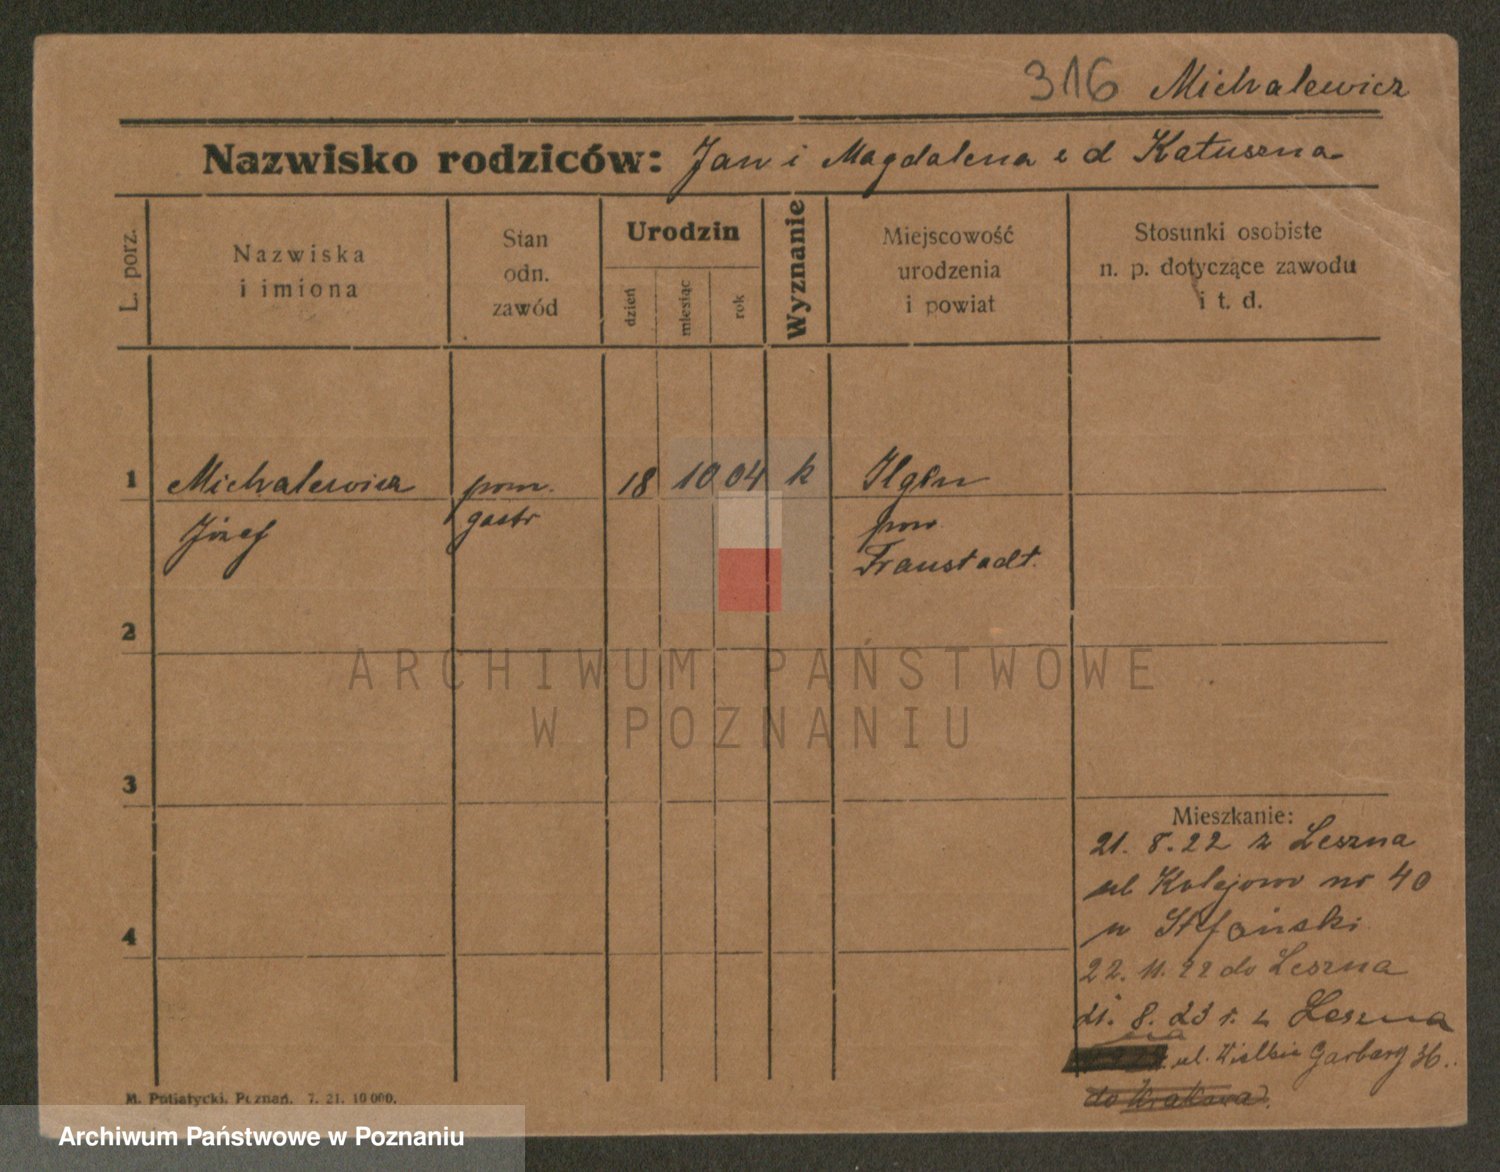 316 Michalewicz
Nazwisko rodziców: Jan i Magdalena e d Katuszna
L. porz.
Nazwiska
i imiona
Stan
odn.
zawód
Urodzin
dzień
miesiąc
rok
Wyznanie
Miejscowość
urodzenia
i powiat
Stosunki osobiste
n. p. dotyczące zawodu
i t. d.
1 Michalewicz pom. 18 10 04 k Ilgen
Józef gastr pow
Fraustadt.
2
3
4
Mieszkanie:
21. 8. 22 z Leszna
ul. Kolejowo nr 40
u Stefański
22. 11. 22 do Leszna
21. 8. 23 r. z Leszna
na
ul. Wielkie Garbary 36.
do Krakowa
M. Putiatycki, Poznań. 7. 21. 10 000.
ARCHIWUM PAŃSTWOWE
W POZNANIU
Archiwum Państwowe w Poznaniu